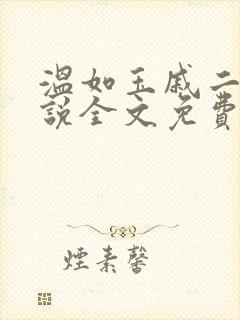 温如玉戚二
說全文免費
煙素馨